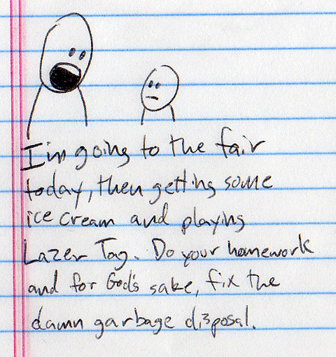 I'm going to the fair
today, then getting some
ice cream and playing
Lazer Tag. Do your homework
and for God's sake, fix the
damn garbage disposal.